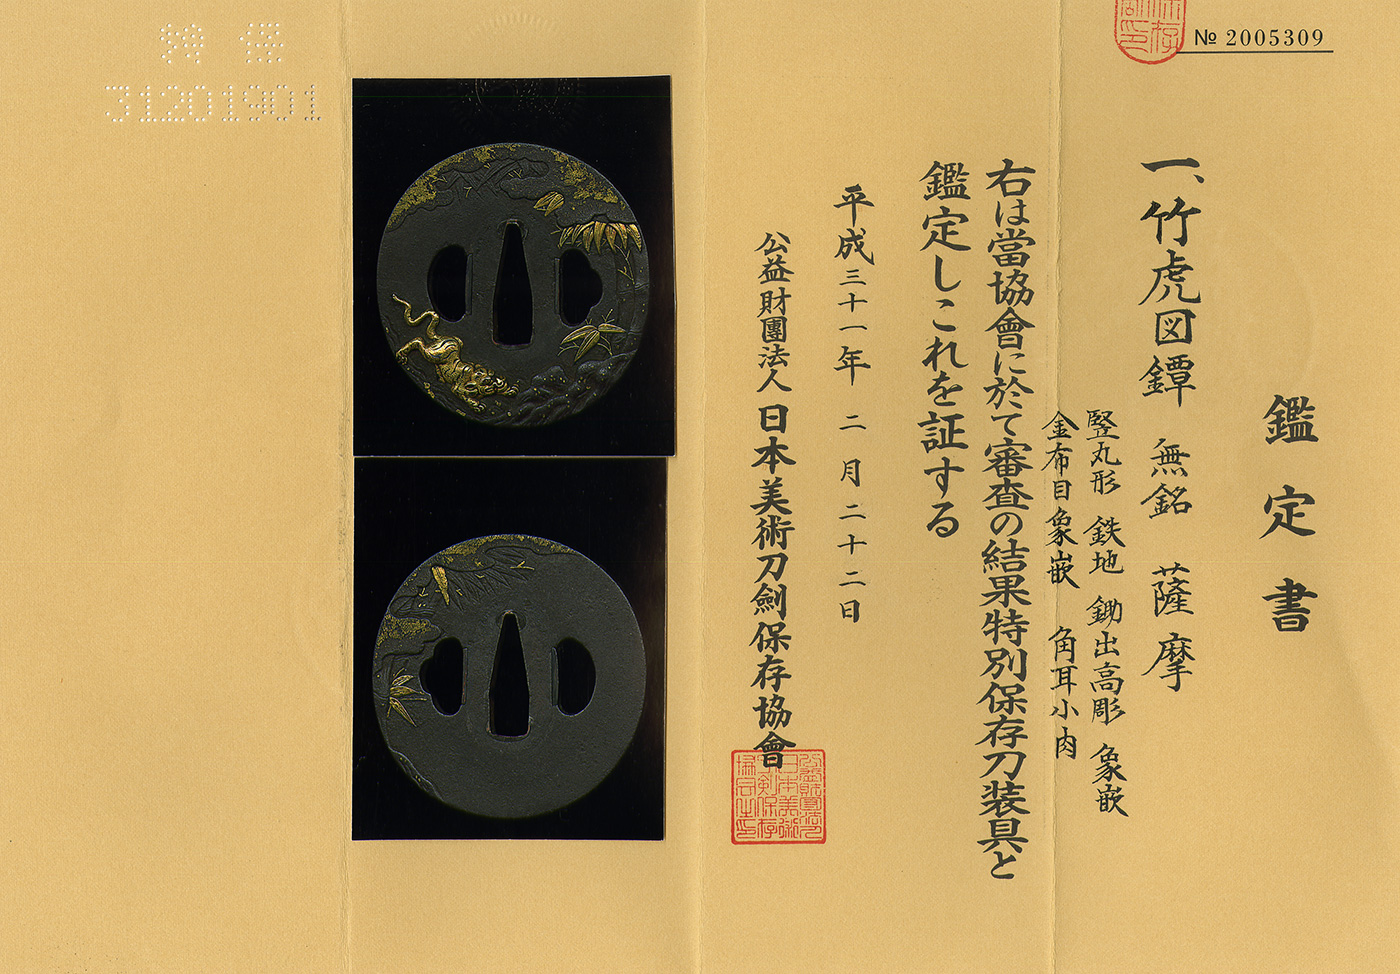 № 2005309
鑑定書
一、竹虎図鐔 無銘 薩摩
竪丸形 鉄地 鋤出高彫 象嵌
金布目象嵌 角耳小肉
右は當協會に於て審査の結果特別保存刀装具と
鑑定しこれを証する
平成三十一年二月二十二日
公益財團法人 日本美術刀劍保存協會
特保
31201901